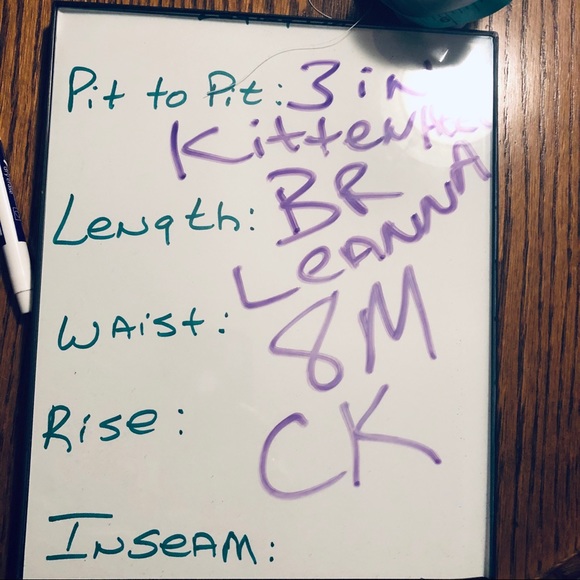 Pit to Pit: 3 in
Kitten
Length: BR
LeANNA
WAist: 8M
Rise: CK
INSeAM: